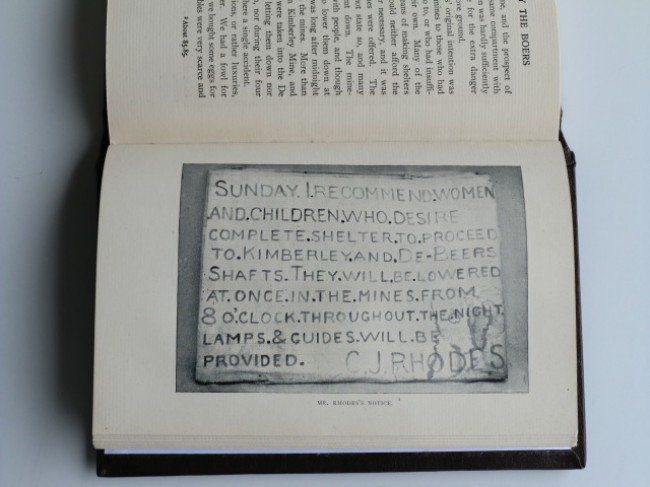 THE BOERS
and the prospect of
compartment with
was hardly sufficiently
for the extra danger
ground.
original intention was
to those who had
to, or who had insuffi-
own. Many of the
of making shelters
neither afford the
necessary, and it was
were offered. The
state so, and many
down. The mine-
with people, and though
lower them down at
was long after midnight
the mines. More than
Kimberley Mine, and
were taken into the De
letting them down nor
nor during their four
a single accident.
or rather luxuries,
had a fowl for
we bought some eggs for
were very scarce and
About
SUNDAY. I.RECOMMEND.WOMEN
AND.CHILDREN.WHO.DESIRE
COMPLETE.SHELTER.TO.PROCEED
TO.KIMBERLEY.AND.DE-BEERS
SHAFTS.THEY.WILL.BE.LOWERED
AT.ONCE.IN.THE.MINES.FROM
8 O'CLOCK.THROUGHOUT.THE.NIGHT.
LAMPS.&.GUIDES.WILL.BE
PROVIDED. C.J.RHODES
MR. RHODES'S NOTICE.